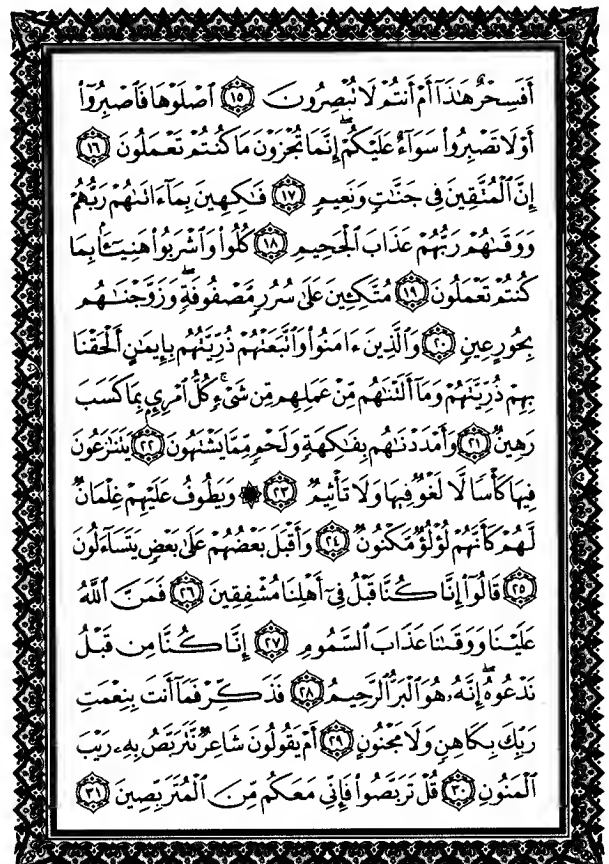 أَفَسِحْرٌ هَٰذَآ أَمْ أَنتُمْ لَا تُبْصِرُونَ ۝١٥ ٱصْلَوْهَا فَٱصْبِرُوٓا۟
أَوْ لَا تَصْبِرُوا۟ سَوَآءٌ عَلَيْكُمْ ۖ إِنَّمَا تُجْزَوْنَ مَا كُنتُمْ تَعْمَلُونَ ۝١٦
إِنَّ ٱلْمُتَّقِينَ فِى جَنَّٰتٍ وَنَعِيمٍ ۝١٧ فَٰكِهِينَ بِمَآ ءَاتَىٰهُمْ رَبُّهُمْ
وَوَقَىٰهُمْ رَبُّهُمْ عَذَابَ ٱلْجَحِيمِ ۝١٨ كُلُوا۟ وَٱشْرَبُوا۟ هَنِيٓـًٔۢا بِمَا
كُنتُمْ تَعْمَلُونَ ۝١٩ مُتَّكِـِٔينَ عَلَىٰ سُرُرٍ مَّصْفُوفَةٍ ۖ وَزَوَّجْنَٰهُم
بِحُورٍ عِينٍ ۝٢٠ وَٱلَّذِينَ ءَامَنُوا۟ وَٱتَّبَعَتْهُمْ ذُرِّيَّتُهُم بِإِيمَٰنٍ أَلْحَقْنَا
بِهِمْ ذُرِّيَّتَهُمْ وَمَآ أَلَتْنَٰهُم مِّنْ عَمَلِهِم مِّن شَىْءٍ ۚ كُلُّ ٱمْرِئٍۭ بِمَا كَسَبَ
رَهِينٌ ۝٢١ وَأَمْدَدْنَٰهُم بِفَٰكِهَةٍ وَلَحْمٍ مِّمَّا يَشْتَهُونَ ۝٢٢ يَتَنَٰزَعُونَ
فِيهَا كَأْسًا لَّا لَغْوٌ فِيهَا وَلَا تَأْثِيمٌ ۝٢٣ ۞ وَيَطُوفُ عَلَيْهِمْ غِلْمَانٌ
لَّهُمْ كَأَنَّهُمْ لُؤْلُؤٌ مَّكْنُونٌ ۝٢٤ وَأَقْبَلَ بَعْضُهُمْ عَلَىٰ بَعْضٍ يَتَسَآءَلُونَ
۝٢٥ قَالُوٓا۟ إِنَّا كُنَّا قَبْلُ فِىٓ أَهْلِنَا مُشْفِقِينَ ۝٢٦ فَمَنَّ ٱللَّهُ
عَلَيْنَا وَوَقَىٰنَا عَذَابَ ٱلسَّمُومِ ۝٢٧ إِنَّا كُنَّا مِن قَبْلُ
نَدْعُوهُ ۖ إِنَّهُۥ هُوَ ٱلْبَرُّ ٱلرَّحِيمُ ۝٢٨ فَذَكِّرْ فَمَآ أَنتَ بِنِعْمَتِ
رَبِّكَ بِكَاهِنٍ وَلَا مَجْنُونٍ ۝٢٩ أَمْ يَقُولُونَ شَاعِرٌ نَّتَرَبَّصُ بِهِۦ رَيْبَ
ٱلْمَنُونِ ۝٣٠ قُلْ تَرَبَّصُوا۟ فَإِنِّى مَعَكُم مِّنَ ٱلْمُتَرَبِّصِينَ ۝٣١